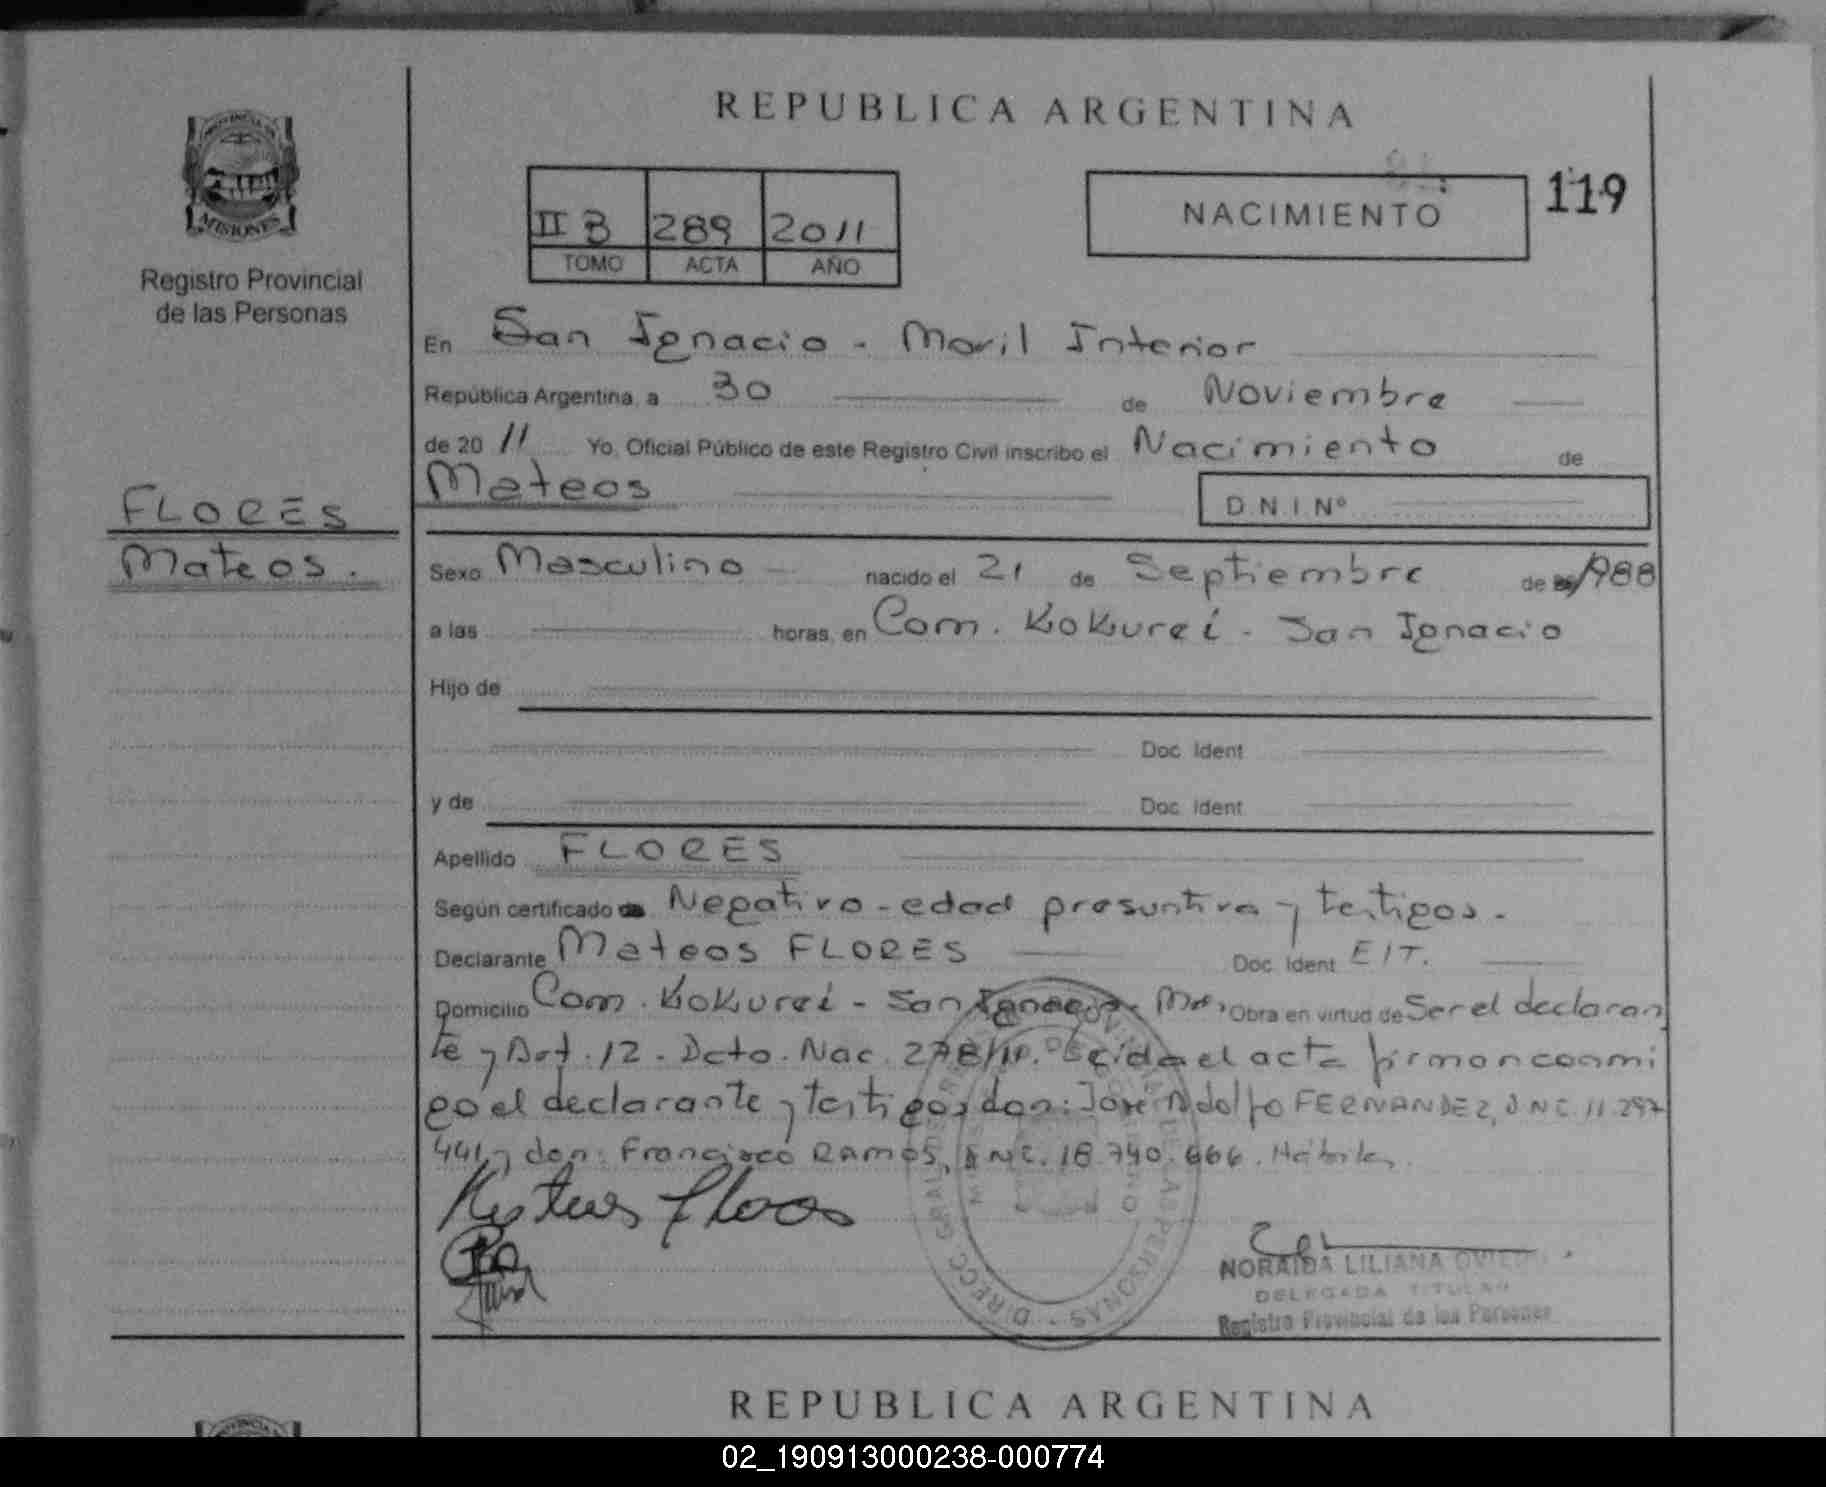 REPUBLICA ARGENTINA
PROVINCIA DE
MISIONES
Registro Provincial
de las Personas
II B 289 2011
TOMO ACTA AÑO
NACIMIENTO
119
En San Ignacio - Movil Interior
República Argentina, a 30 de Noviembre
de 20 11 Yo, Oficial Público de este Registro Civil inscribo el Nacimiento de
Mateos
D.N.I. Nº
FLORES
Mateos.
Sexo Masculino nacido el 21 de Septiembre de 1988
a las horas, en Com. Kokurei - San Ignacio
Hijo de
Doc. Ident
y de Doc. Ident
Apellido FLORES
Según certificado de Negativo - edad presuntiva y testigos.
Declarante Mateos FLORES Doc. Ident E/T.
Domicilio Com. Kokurei - San Ignacio - Ms, Obra en virtud de Ser el declaran
te y Art. 12. Dcto. Nac. 278/11. Leida el acta firman conmi
go el declarante y testigos don: José Adolfo FERNANDEZ, DNI. 11.297
441 y don: Francisco Ramos, DNI. 18.740.666. Hábiles.
Mateus floos
DIRECC. GRAL. DE REG. PROVINCIAL DE LAS PERSONAS
NORAIDA LILIANA OVIEDO
DELEGADA TITULAR
Registro Provincial de las Personas
REPUBLICA ARGENTINA
02_190913000238-000774